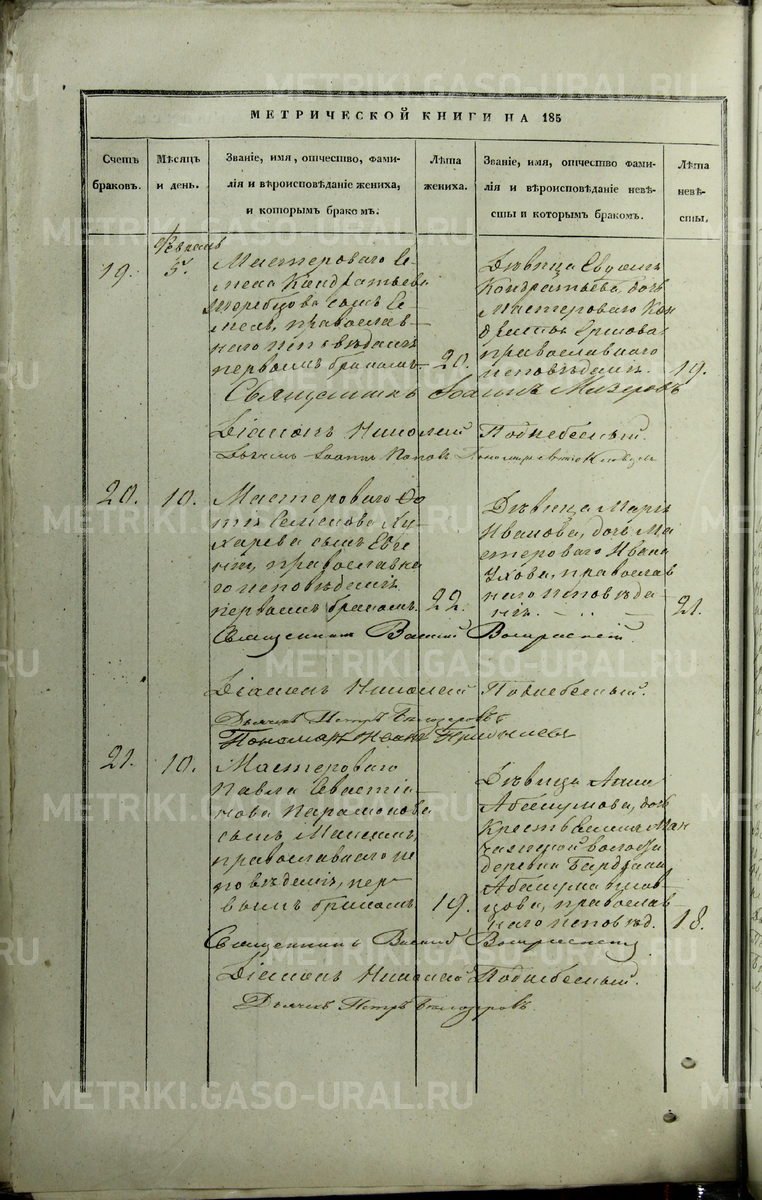 МЕТРИЧЕСКОЙ КНИГИ НА 185
Счетъ
браковъ.
Мѣсяцъ
и день.
Званіе, имя, отчество, фами-
лія и вѣроисповѣданіе жениха,
и которымъ бракомъ.
Лѣта
жениха.
Званіе, имя, отчество фами-
лія и вѣроисповѣданіе невѣ-
сты и которымъ бракомъ.
Лѣта
невѣ-
сты.
19.
5.
Мастероваго Се-
мена Кондратьева
сынъ Се-
менъ, православ-
наго исповѣданія
первымъ бракомъ
20.
Дѣвица
Кондратьева, дочь
Мастероваго Кон
дратья
православнаго
исповѣданія.
19.
Священникъ Іоаннъ
Діаконъ Николай Поднебесный.
Дьячекъ Іоаннъ Поповъ
20.
10.
Мастероваго Фо
тія Семенова Ку-
харева сынъ Евге
ній, православна
го исповѣданія
первымъ бракомъ.
22.
Дѣвица Марія
Иванова, дочь Ма
стероваго Ивана
Ухова, православ
наго исповѣда
нія.
21.
Священникъ Василій
Діаконъ Николай Поднебесный.
Дьячекъ Петръ Бѣлозеровъ
Пономарь Иоанъ
21.
10.
Мастероваго
Павла Севастіа-
нова Парамонова
сынъ Максимъ,
православнаго ис
повѣданія, пер-
вымъ бракомъ
19.
Дѣвица Анна
дочь
волости
деревни
православ
наго исповѣд.
18.
Священникъ Василій
Діаконъ Николай Поднебесный.
Дьячекъ Петръ Бѣлозеровъ.
METRIKI.GASO-URAL.RU